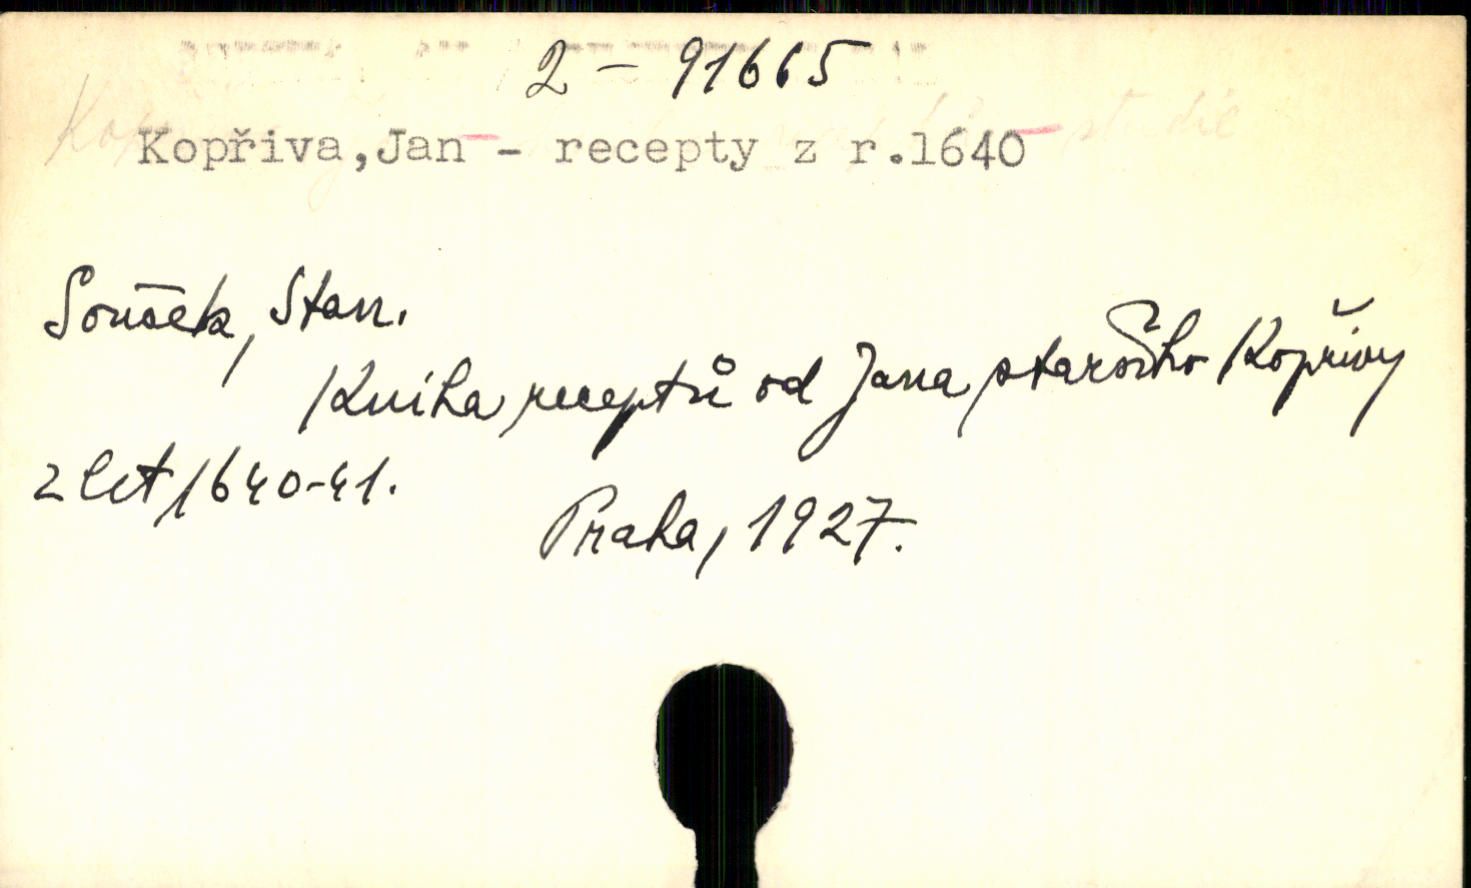 2 - 91665
Kopřiva,Jan - recepty z r.1640
Souček, Stan.
Kniha receptů od Jana staršího Kopřivy
z let 1640-41.
Praha, 1927.